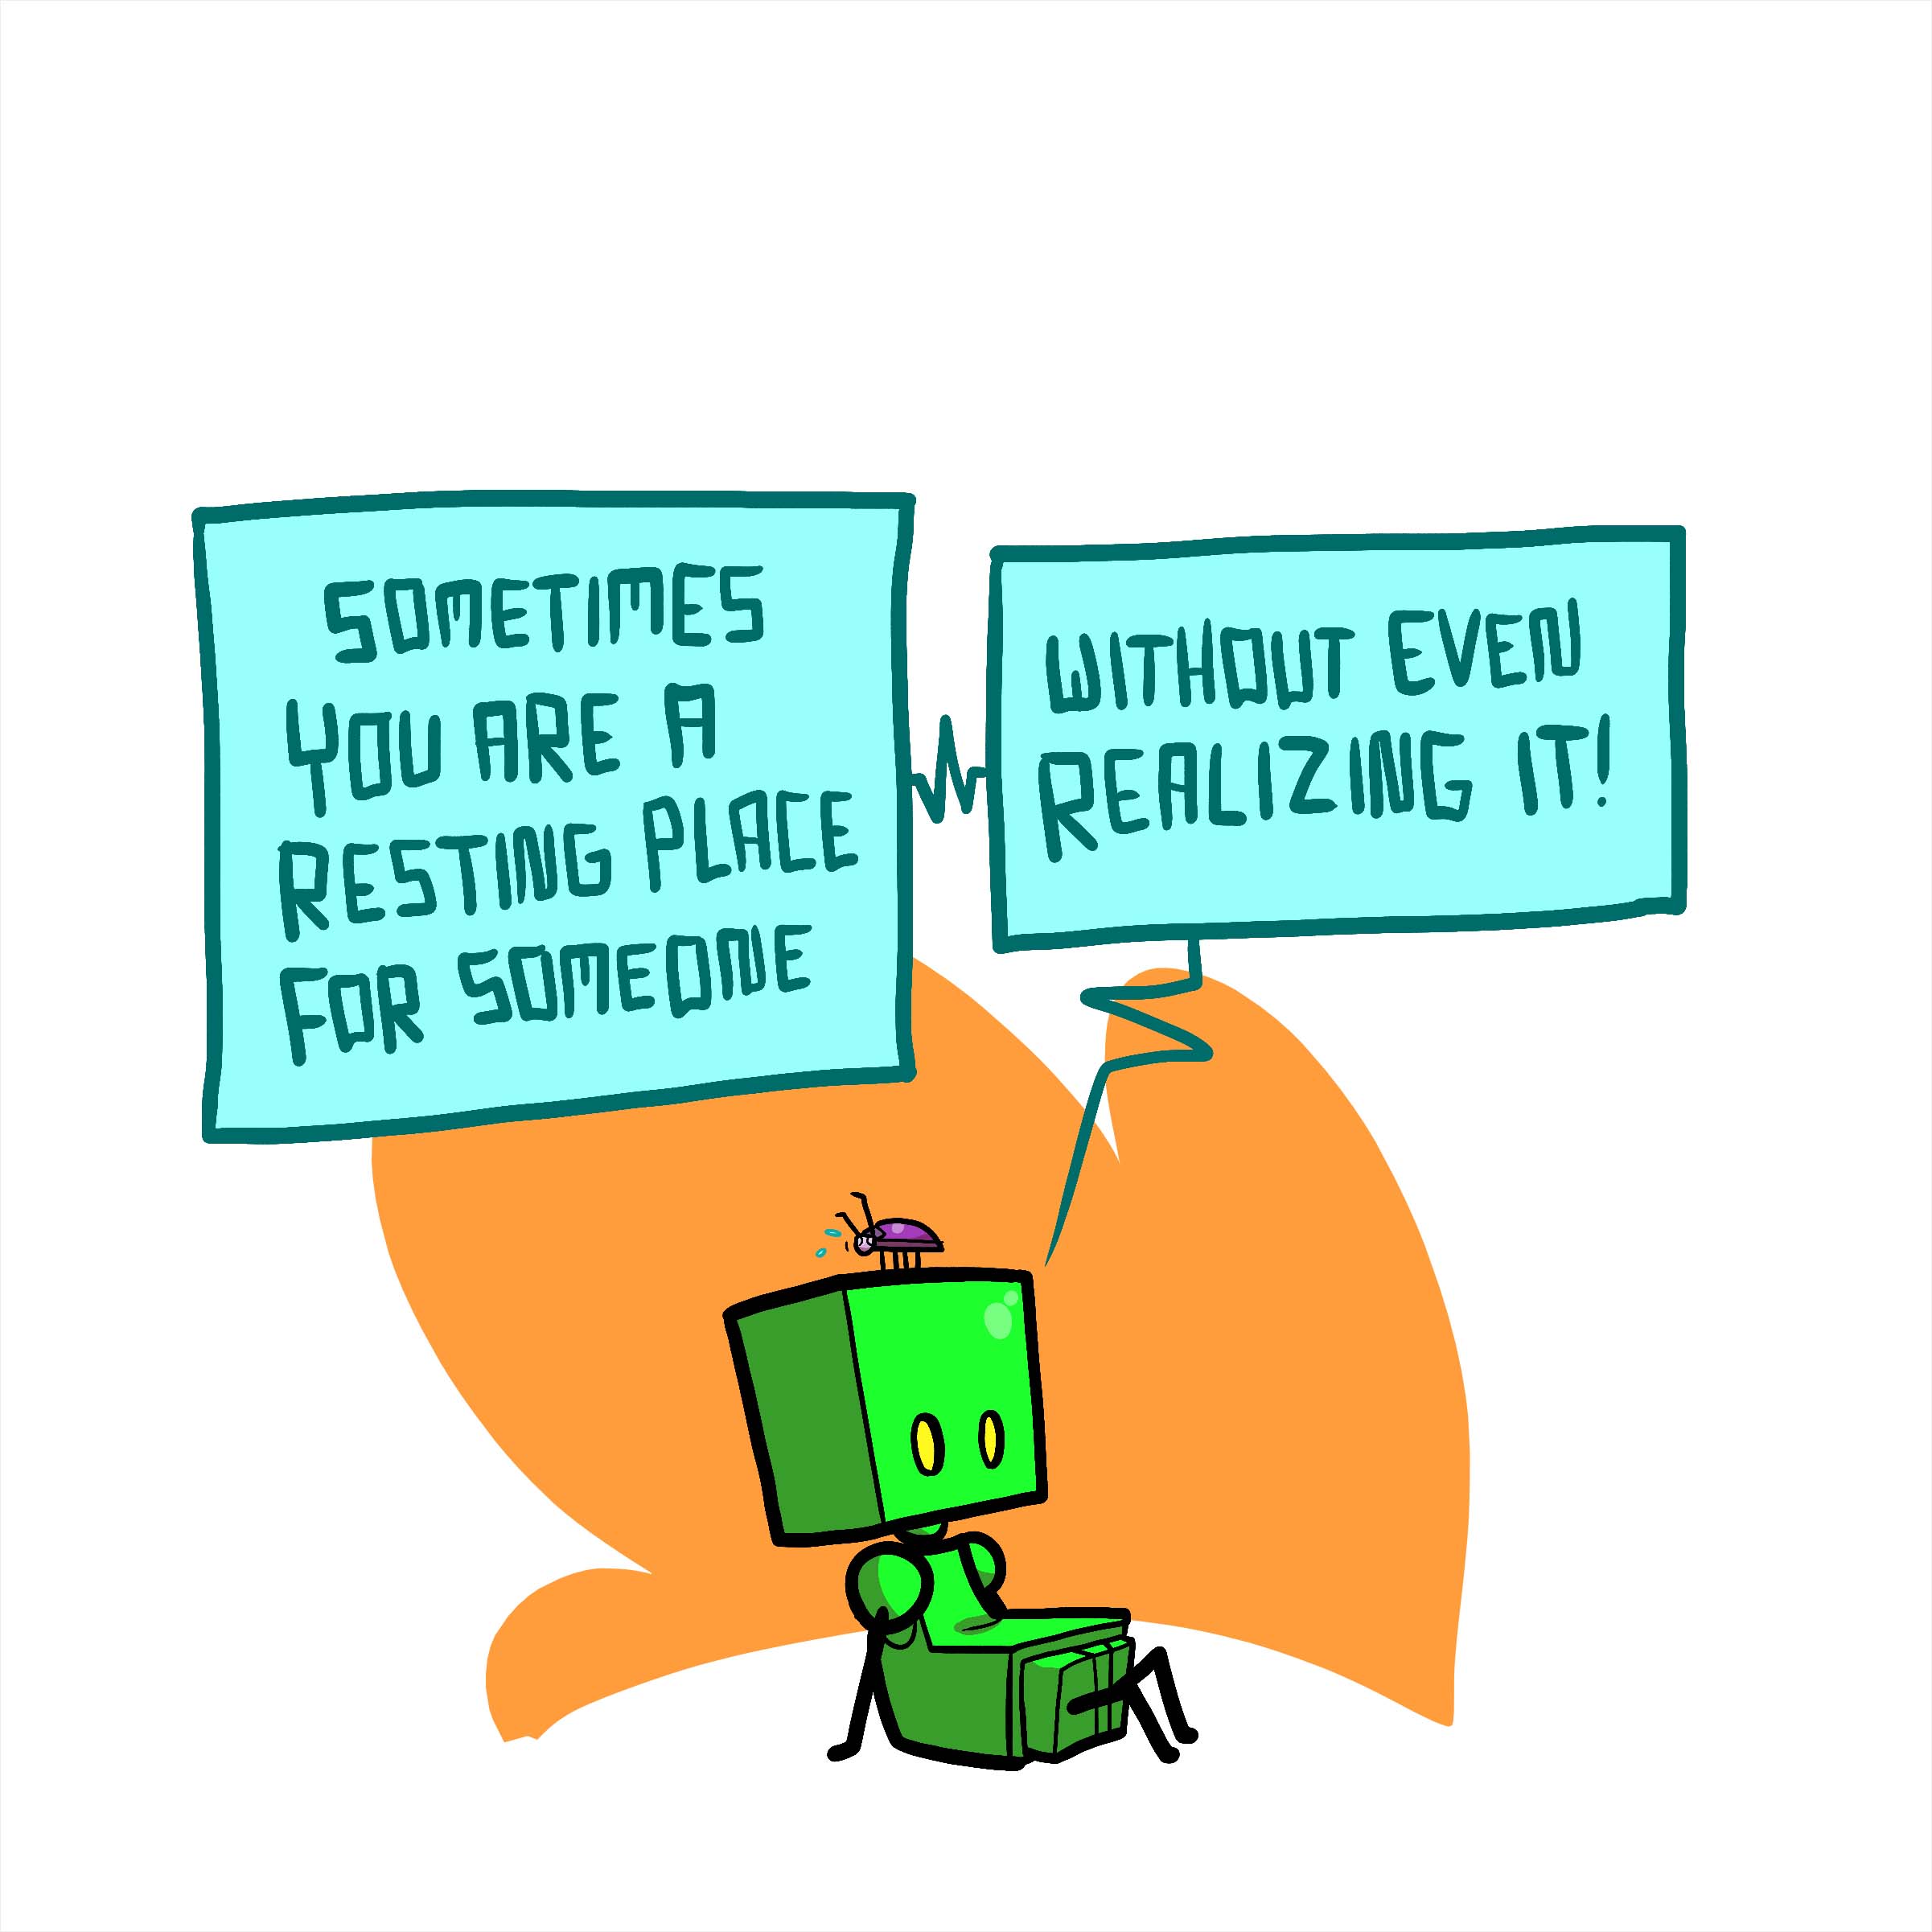 SOMETIMES
YOU ARE A
RESTING PLACE
FOR SOMEONE
WITHOUT EVEN
REALIZING IT!